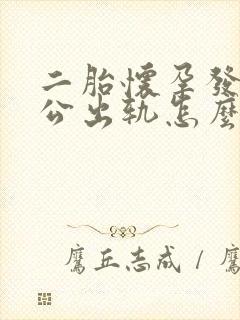 二胎懷孕發
公出軌怎麼
鷹丘志成 / 鷹